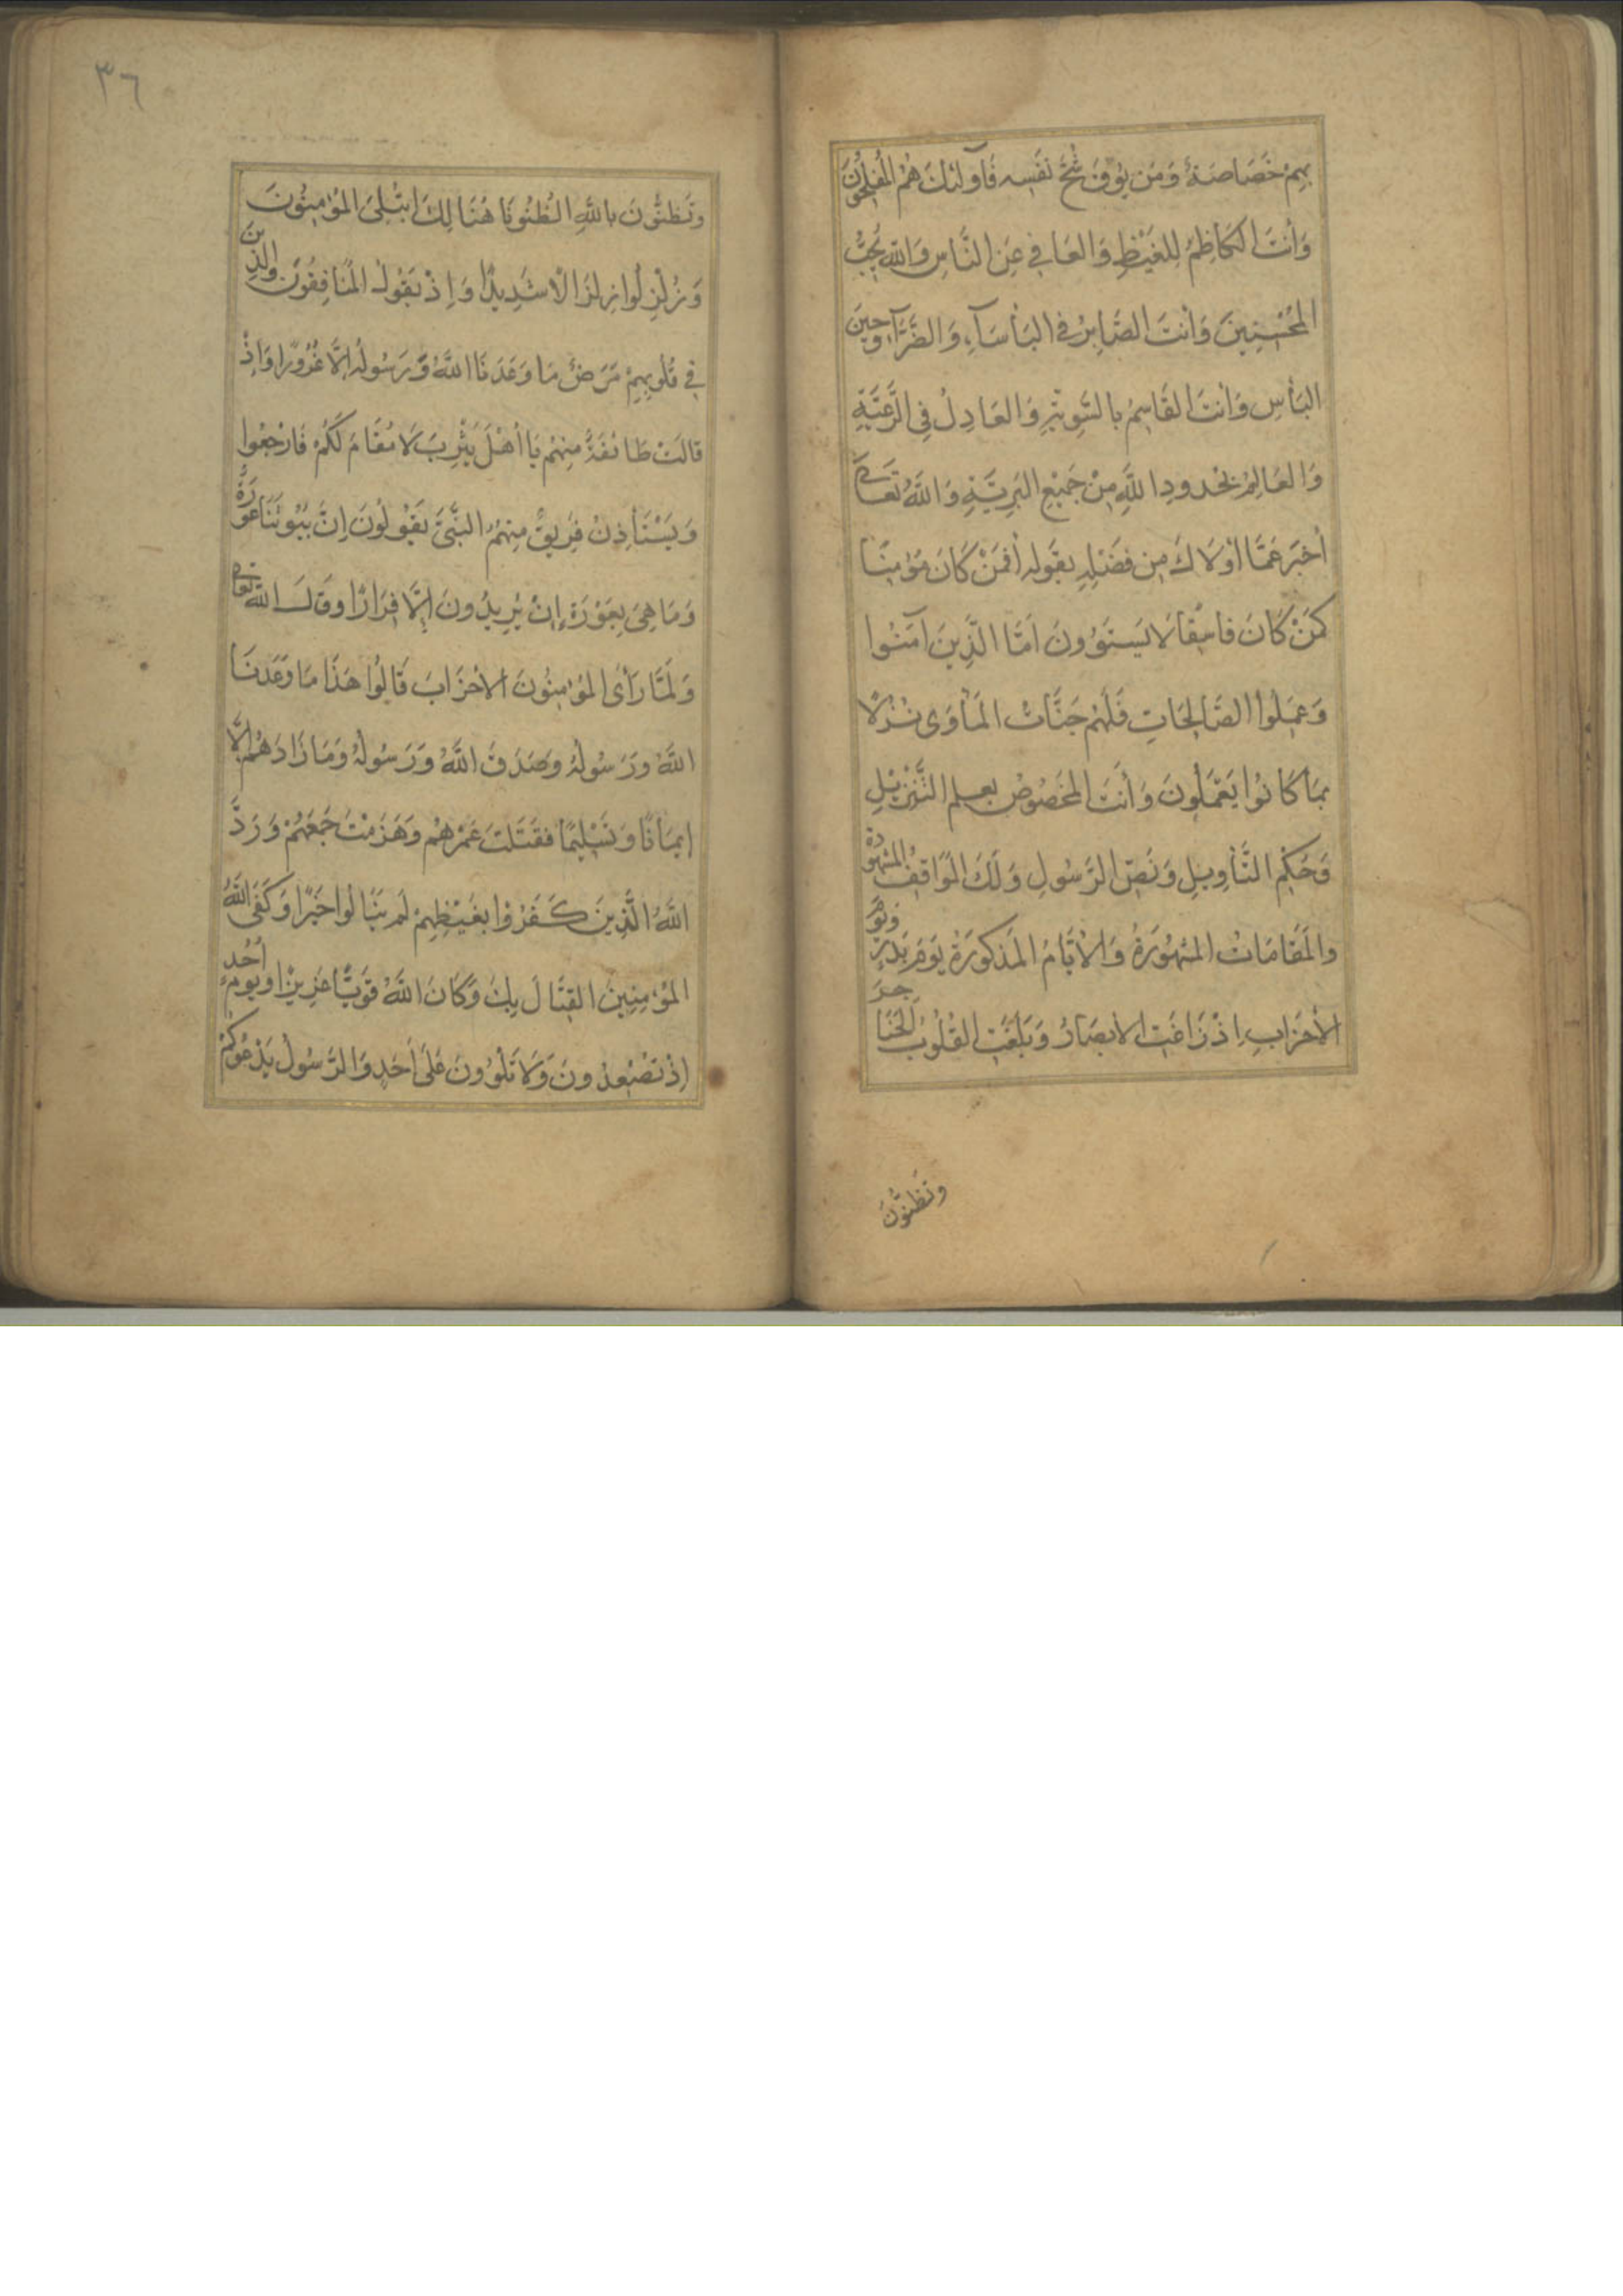 بِهِمْ خَصَاصَةٌ وَمَن يُوقَ شُحَّ نَفْسِهِ فَأُولَئِكَ هُمُ الْمُفْلِحُونَ
وَأَنْتَ الْكَاظِمُ لِلْغَيْظِ وَالْعَافِي عَنِ النَّاسِ وَاللهُ يُحِبُّ
الْمُحْسِنِينَ وَأَنْتَ الصَّابِرُ فِي الْبَأْسَآءِ وَالضَّرَّآءِ وَحِينَ
الْبَأْسِ وَأَنْتَ الْقَاسِمُ بِالسَّوِيَّةِ وَالْعَادِلُ فِي الرَّعِيَّةِ
وَالْعَالِمُ بِحُدُودِ اللَّهِ مِنْ جَمِيْعِ الْبَرِيَّةِ وَاللَّهُ تَعَالَى
أَخْبَرَ عَمَّا أَوْلَاكَ مِن فَضْلِهِ بِقَولِهِ أَفَمَنْ كَانَ مُؤْمِنًا
كَمَنْ كَانَ فَاسِقًا لَا يَسْتَوُونَ أَمَّا الَّذِينَ آمَنُوا
وَعَمِلُوا الصَّالِحَاتِ فَلَهُمْ جَنَّاتُ الْمَأْوَى نُزُلًا
بِمَا كَانُوا يَعْمَلُونَ وَأَنْتَ الْمَخْصُوصُ بِعِلْمِ التَّنْزِيْلِ
وَحُكْمِ التَّأْوِيلِ وَنَصِّ الرَّسُولِ وَلَكَ الْمَوَاقِفُ الْمَشْهُودَةُ
وَالْمَقَامَاتُ الْمَشْهُورَةُ وَالْأَيَّامُ الْمَذْكُورَةُ يَوْمَ بَدْرٍ وَيَوْمَ
الْأَحْزَابِ إِذْ زَاغَتِ الْأَبْصَارُ وَبَلَغَتِ الْقُلُوبُ الْحَنَاجِرَ
وَتَظُنُّونَ
٣٦
وَتَظُنُّونَ بِاللَّهِ الظُّنُونَا هُنَالِكَ ابْتُلِيَ الْمُؤْمِنُونَ
وَزُلْزِلُوا زِلْزَالًا شَدِيدًا وَإِذْ يَقُولُ الْمُنَافِقُونَ وَالَّذِينَ
فِي قُلُوبِهِمْ مَرَضٌ مَا وَعَدَنَا اللَّهُ وَرَسُولُهُ إِلَّا غُرُورًا وَإِذْ
قَالَتْ طَائِفَةٌ مِنْهُمْ يَا أَهْلَ يَثْرِبَ لَا مُقَامَ لَكُمْ فَارْجِعُوا
وَيَسْتَأْذِنُ فَرِيقٌ مِنْهُمُ النَّبِيَّ يَقُولُونَ إِنَّ بُيُوتَنَا عَوْرَةٌ
وَمَا هِيَ بِعَوْرَةٍ إِنْ يُرِيدُونَ إِلَّا فِرَارًا وَقَالَ اللَّهُ تَعَالَى
وَلَمَّا رَأَى الْمُؤْمِنُونَ الْأَحْزَابَ قَالُوا هَذَا مَا وَعَدَنَا
اللَّهُ وَرَسُولُهُ وَصَدَقَ اللَّهُ وَرَسُولُهُ وَمَا زَادَهُمْ إِلَّا
إِيمَانًا وَتَسْلِيمًا فَقَتَلْتَ عَمْرَهُمْ وَهَزَمْتَ جَمْعَهُمْ وَرَدَّ
اللَّهُ الَّذِينَ كَفَرُوا بِغَيْظِهِمْ لَمْ يَنَالُوا خَيْرًا وَكَفَى اللَّهُ
الْمُؤْمِنِينَ الْقِتَالَ بِكَ وَكَانَ اللَّهُ قَوِيًّا عَزِيزًا وَيَوْمَ أُحُدٍ
إِذْ تُصْعِدُونَ وَلَا تَلْوُونَ عَلَى أَحَدٍ وَالرَّسُولُ يَدْعُوكُمْ